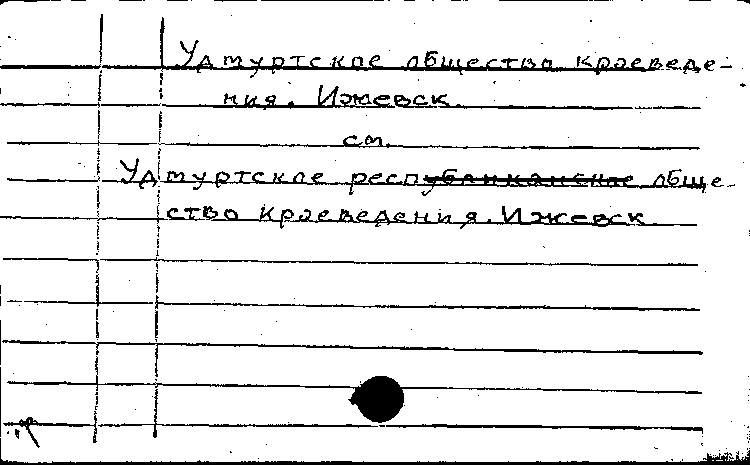 Удмуртское общество краеведе-
ния. Ижевск.
см.
Удмуртское республиканское обще-
ство краеведения. Ижевск